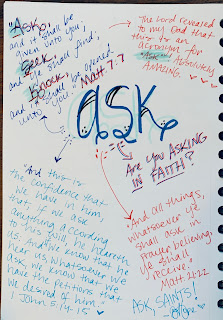 "Ask,
and it shall be
given unto you;
Seek,
and ye shall find;
Knock,
and it shall be opened
unto you."
Matt 7:7
The Lord revealed
to my Dad that
this is an
acronym for
ASK
Absolutely
AMAZING.
ASK
Are You ASKING
IN FAITH?
And this is
the confidence that
we have in Him,
that, if we ask
anything according
to His will, he heareth
us. And if we know that he
hear us, whatsoever we
ask, we know that we
have the petitions that
we desired of him.
John 5:14-15
And all things,
whatsoever ye
shall ask in
Prayer, believing
ye shall
receive.
Matt. 21:22
ASK, SAINTS!